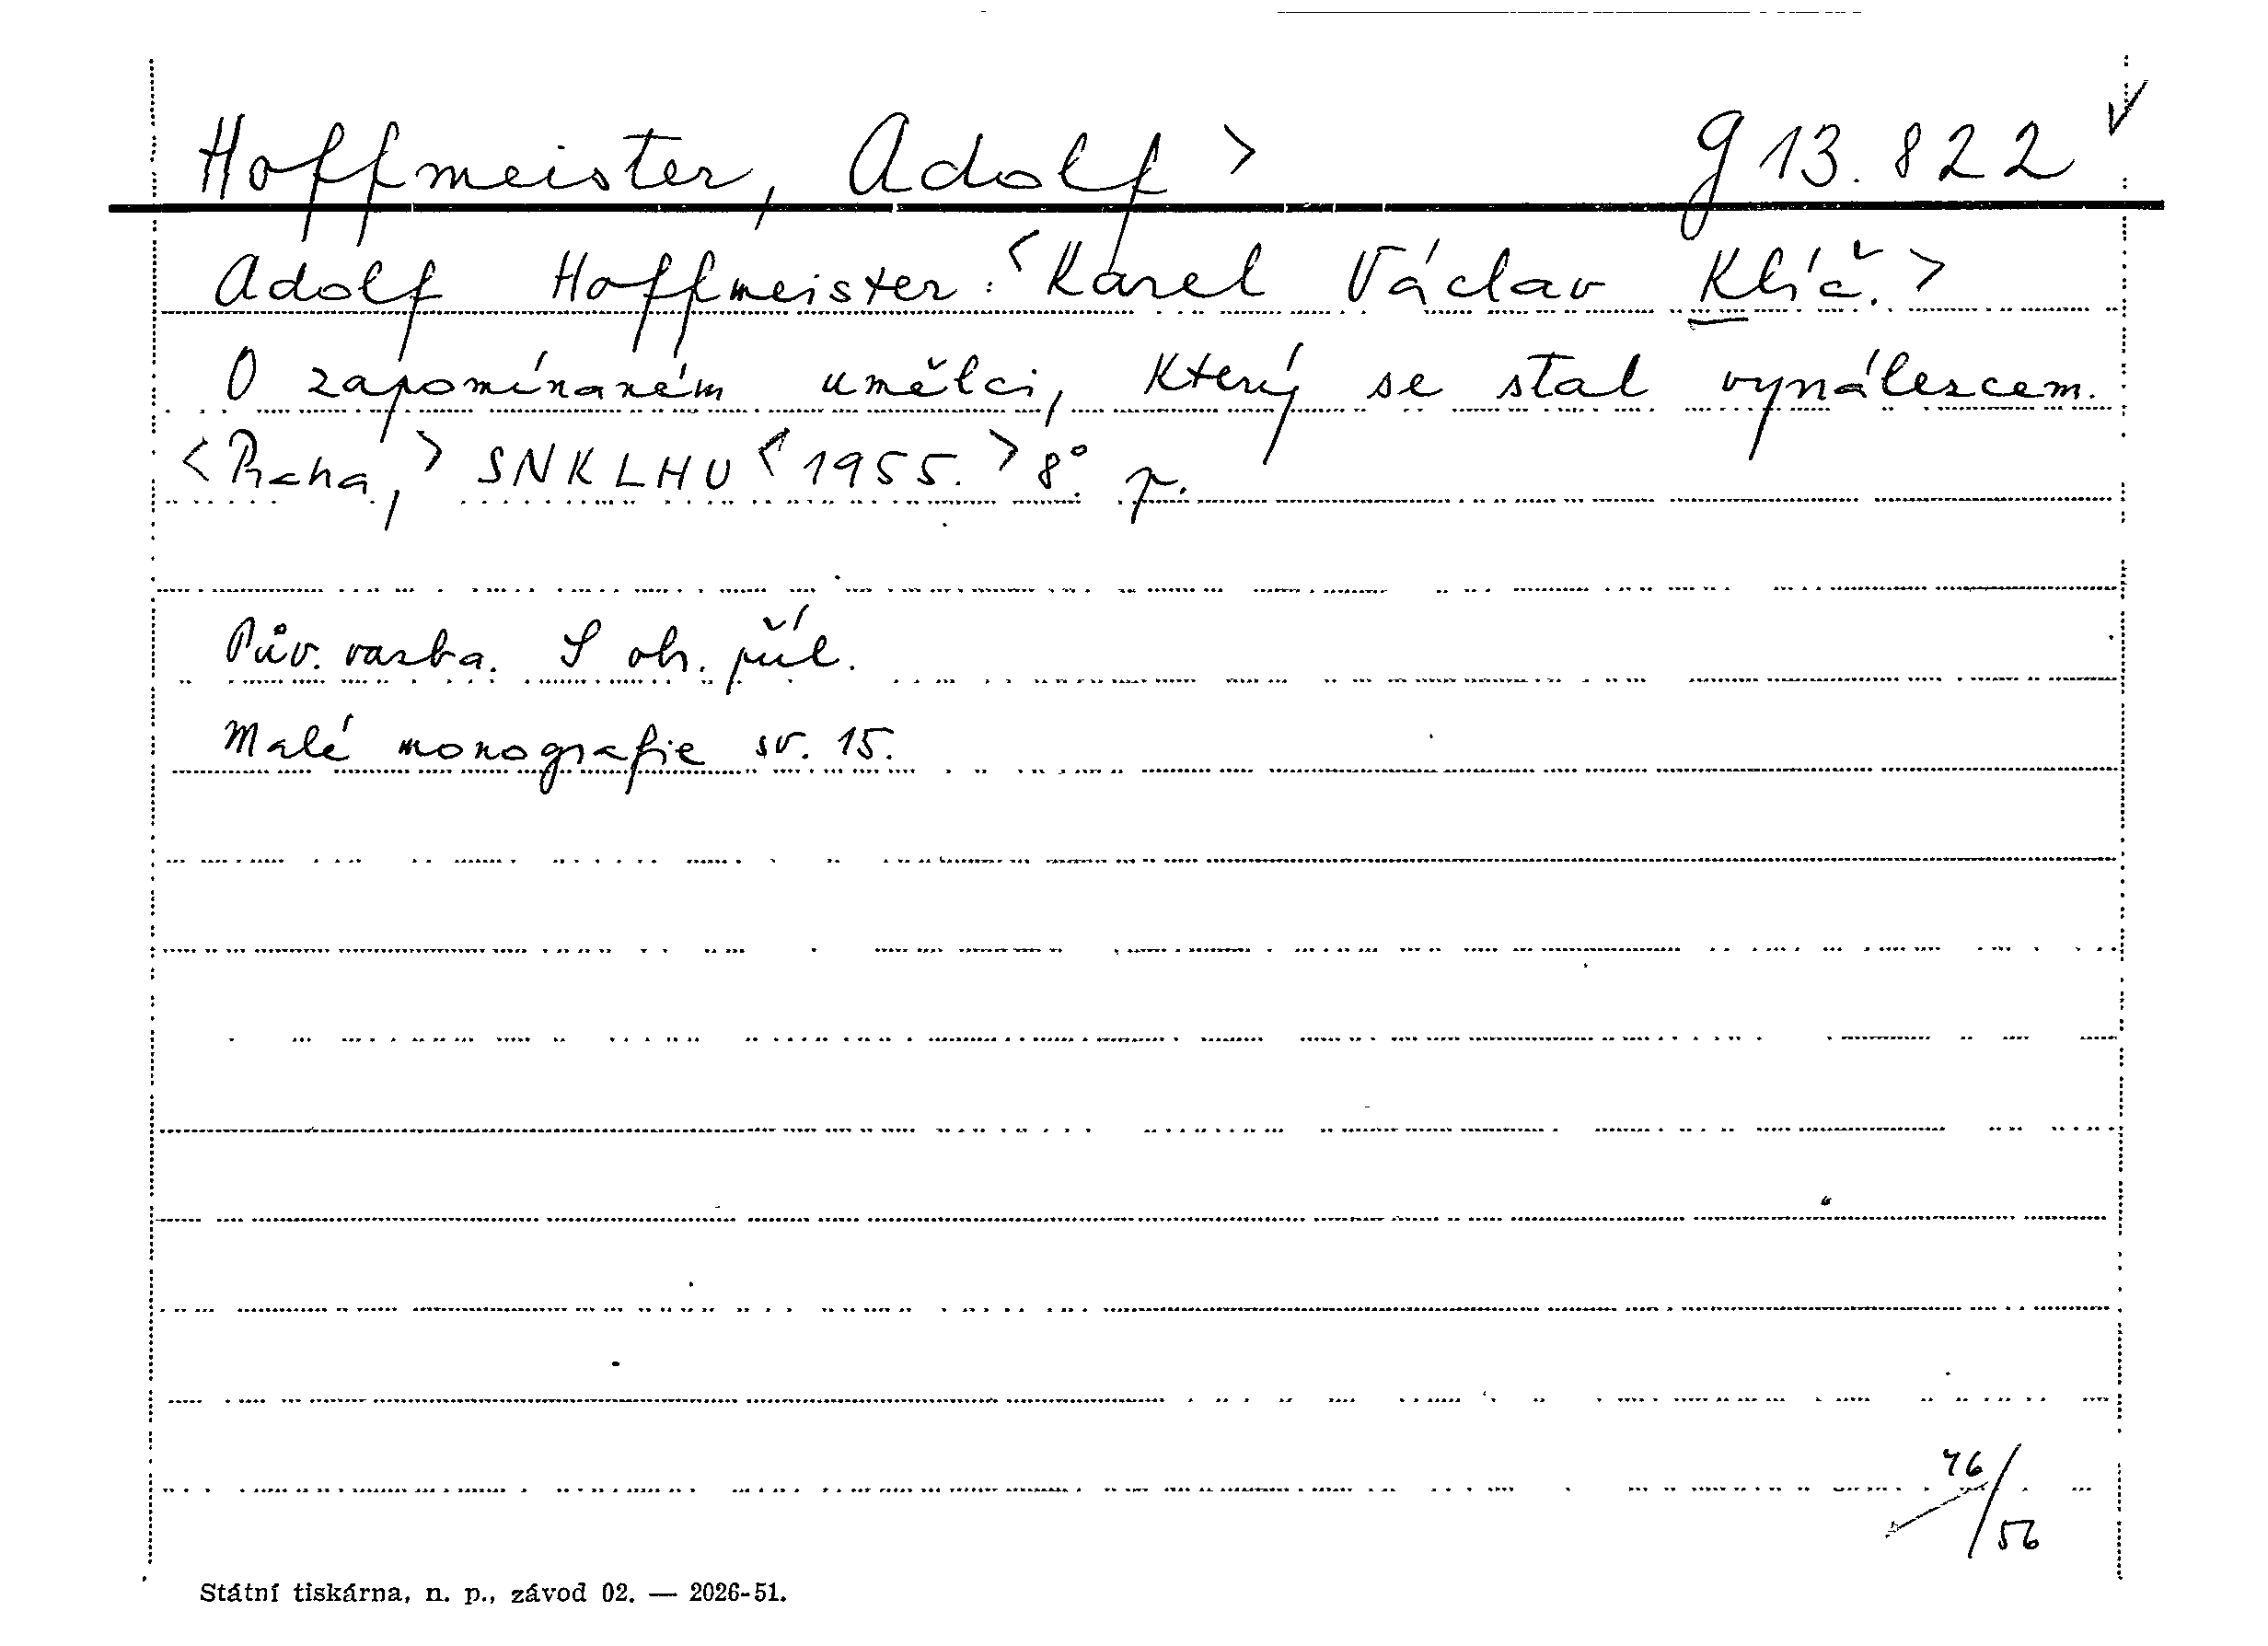 Hoffmeister, Adolf > g 13.822 ✓
Adolf Hoffmeister: <Karel Václav Klíč.>
O zapomínaném umělci, který se stal vynálezcem.
<Praha,> SNKLHU <1955.> 8° p.
Pův. vazba. S obr. příl.
Malé monografie sv. 15.
46/56
Státní tiskárna, n. p., závod 02. — 2026-51.